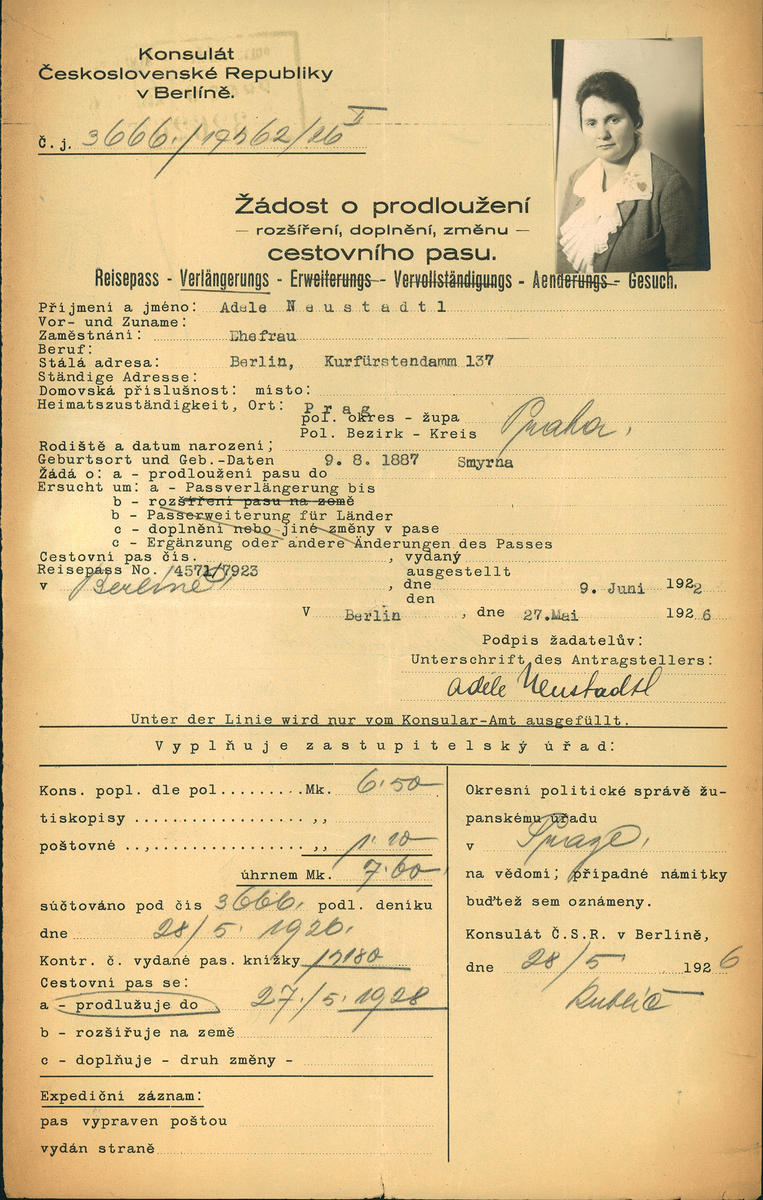 Konsulát
Československé Republiky
v Berlíně.
Č. j. 3666./19762/26 II
Žádost o prodloužení
— rozšíření, doplnění, změnu —
cestovního pasu.
Reisepass - Verlängerungs - Erweiterungs - Vervollständigungs - Aenderungs - Gesuch.
Příjmení a jméno: Adele Neustadtl
Vor- und Zuname:
Zaměstnání: Ehefrau
Beruf:
Stálá adresa: Berlin, Kurfürstendamm 137
Ständige Adresse:
Domovská příslušnost: místo:
Heimatszuständigkeit, Ort: Prag
pol. okres - župa
Pol. Bezirk - Kreis Praha,
Rodiště a datum narození;
Geburtsort und Geb.-Daten 9. 8. 1887 Smyrna
Žádá o: a - prodloužení pasu do
Ersucht um: a - Passverlängerung bis
b - rozšíření pasu na země
b - Passerweiterung für Länder
c - doplnění nebo jiné změny v pase
c - Ergänzung oder andere Änderungen des Passes
Cestovní pas čís. , vydaný
Reisepass No. 4571/7923 ausgestellt
v Berlíně , dne 9. Juni 1922
den
V Berlin , dne 27.Mai 1926
Podpis žadatelův:
Unterschrift des Antragstellers:
Adéle Neustadtl
Unter der Linie wird nur vom Konsular-Amt ausgefüllt.
Vyplňuje zastupitelský úřad:
Kons. popl. dle pol.........Mk. 6.50
tiskopisy .................. ,,
poštovné .................. ,, 1.10
úhrnem Mk. 7.60
súčtováno pod čís 3666. podl. deníku
dne 28/5. 1926.
Kontr. č. vydané pas. knížky 17180
Cestovní pas se:
a - prodlužuje do 27./5. 1928
b - rozšiřuje na země
c - doplňuje - druh změny -
Expediční záznam:
pas vypraven poštou
vydán straně
Okresní politické správě žu-
panskému úřadu
v Praze,
na vědomí; případné námitky
buďtež sem oznámeny.
Konsulát Č.S.R. v Berlíně,
dne 28/5. 1926